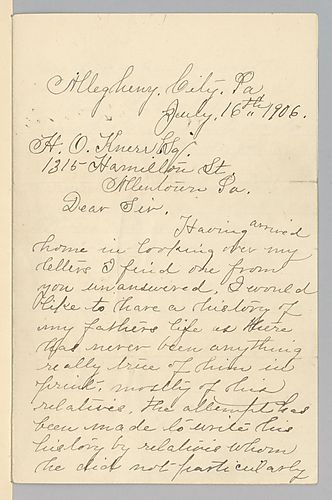 Allegheny. City. Pa
July. 16th 1906.
H. O. Knerr Esq.
1315 Hamilton St
Allentown Pa.
Dear Sir.
Having arrived
home in looking over my
letters I find one from
you unanswered, I would
like to have a history of
my fathers life as there
has never been anything
really true of him in
print, mostly of his
relatives, the attempt has
been made to write his
history by relatives whom
he did not particularly